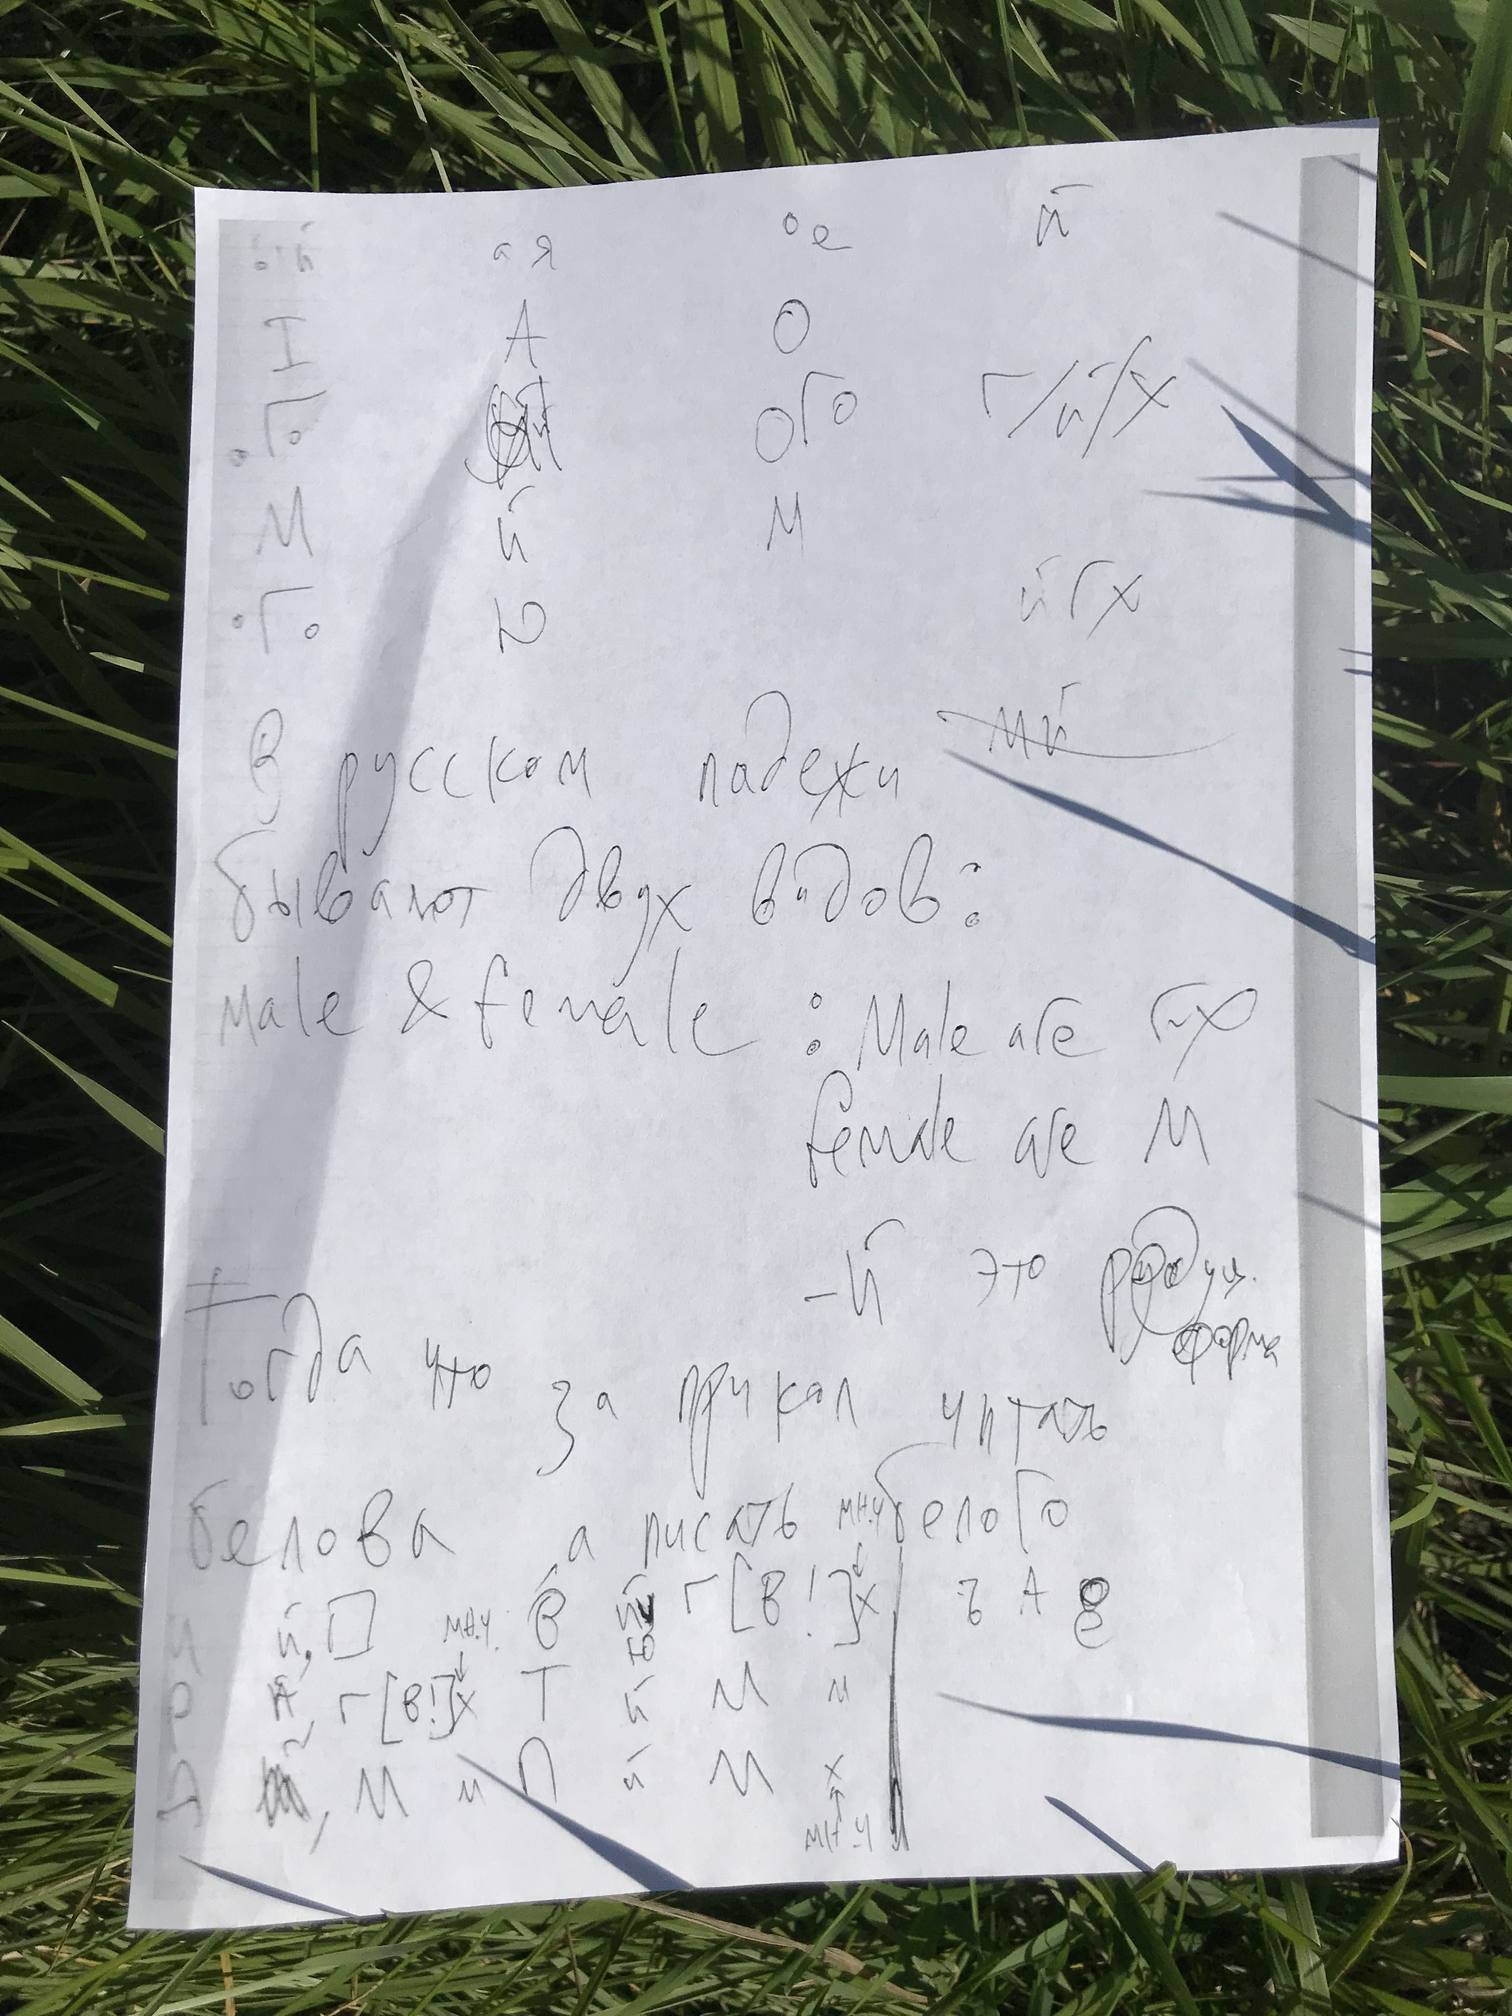 ая ое й
I А О
Го ОГО Г/й/х
М й М
ого
йГх
В русском падежи мй
бывают двух видов:
Male & female : Male are Гух
female are M
-й это редуц. форма
Тогда что за прикол читать
белова а писать белого
мн.ч
й, Г[В!]х ъ А е
мн.ч.
Й, Г[В!]х Т й М и
, М и П й М х
мн.ч